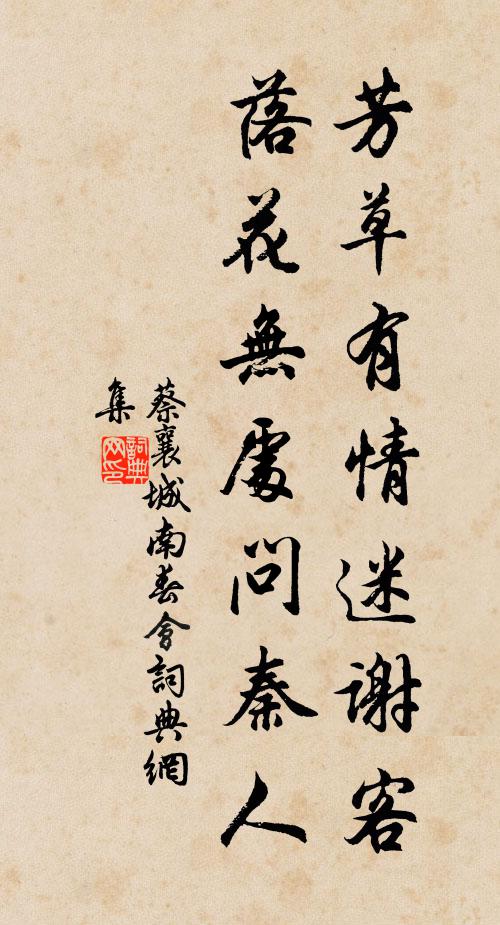 芳草有情迷謝客
落花無處問秦人
蔡襄城南春會詞典網
集
詞典网印